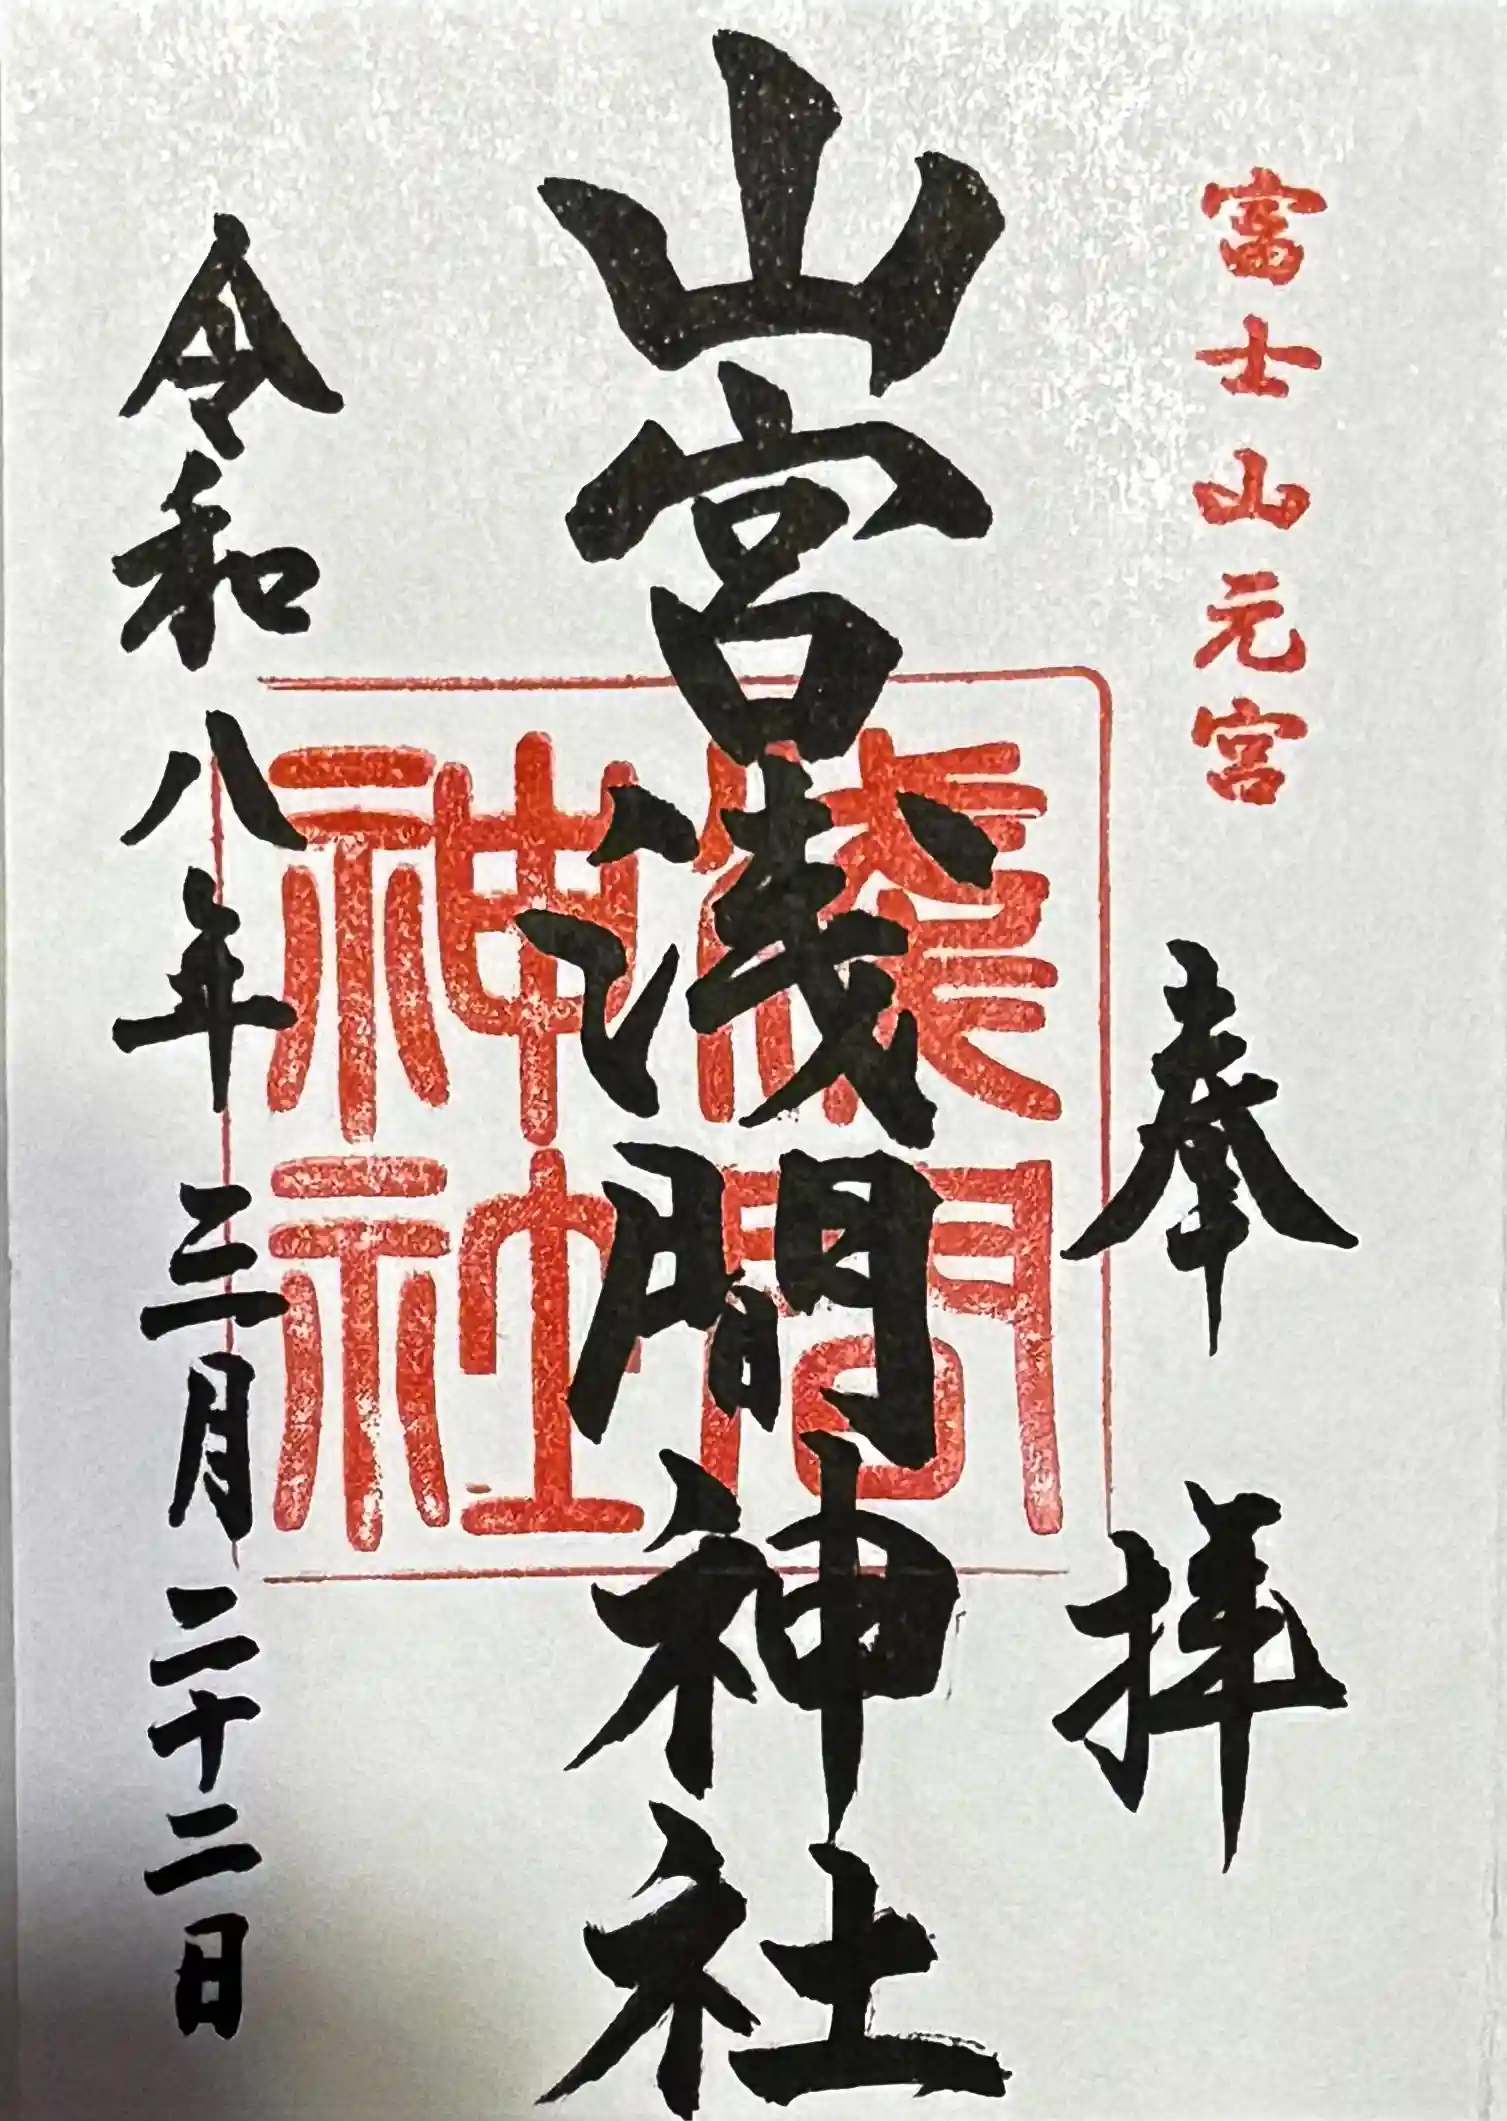 富士山元宮
奉拝
山宮浅間神社
浅間
神社
令和八年三月二十二日